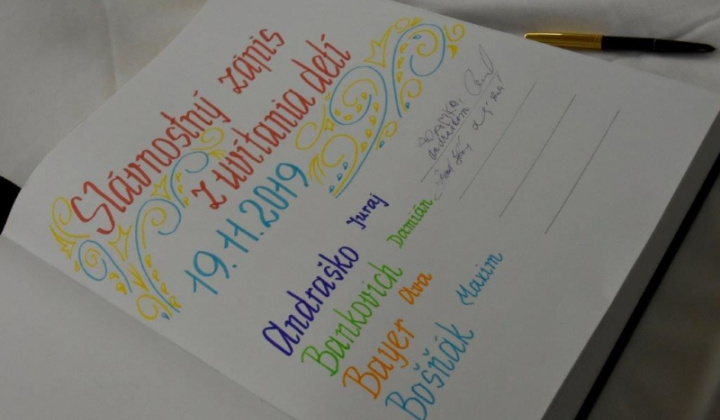 Slávnostný zápis
z uvítania detí
19.11.2019
Andraško Juraj
Bankovich Damián
Bayer Ava
Bošňák Maxim